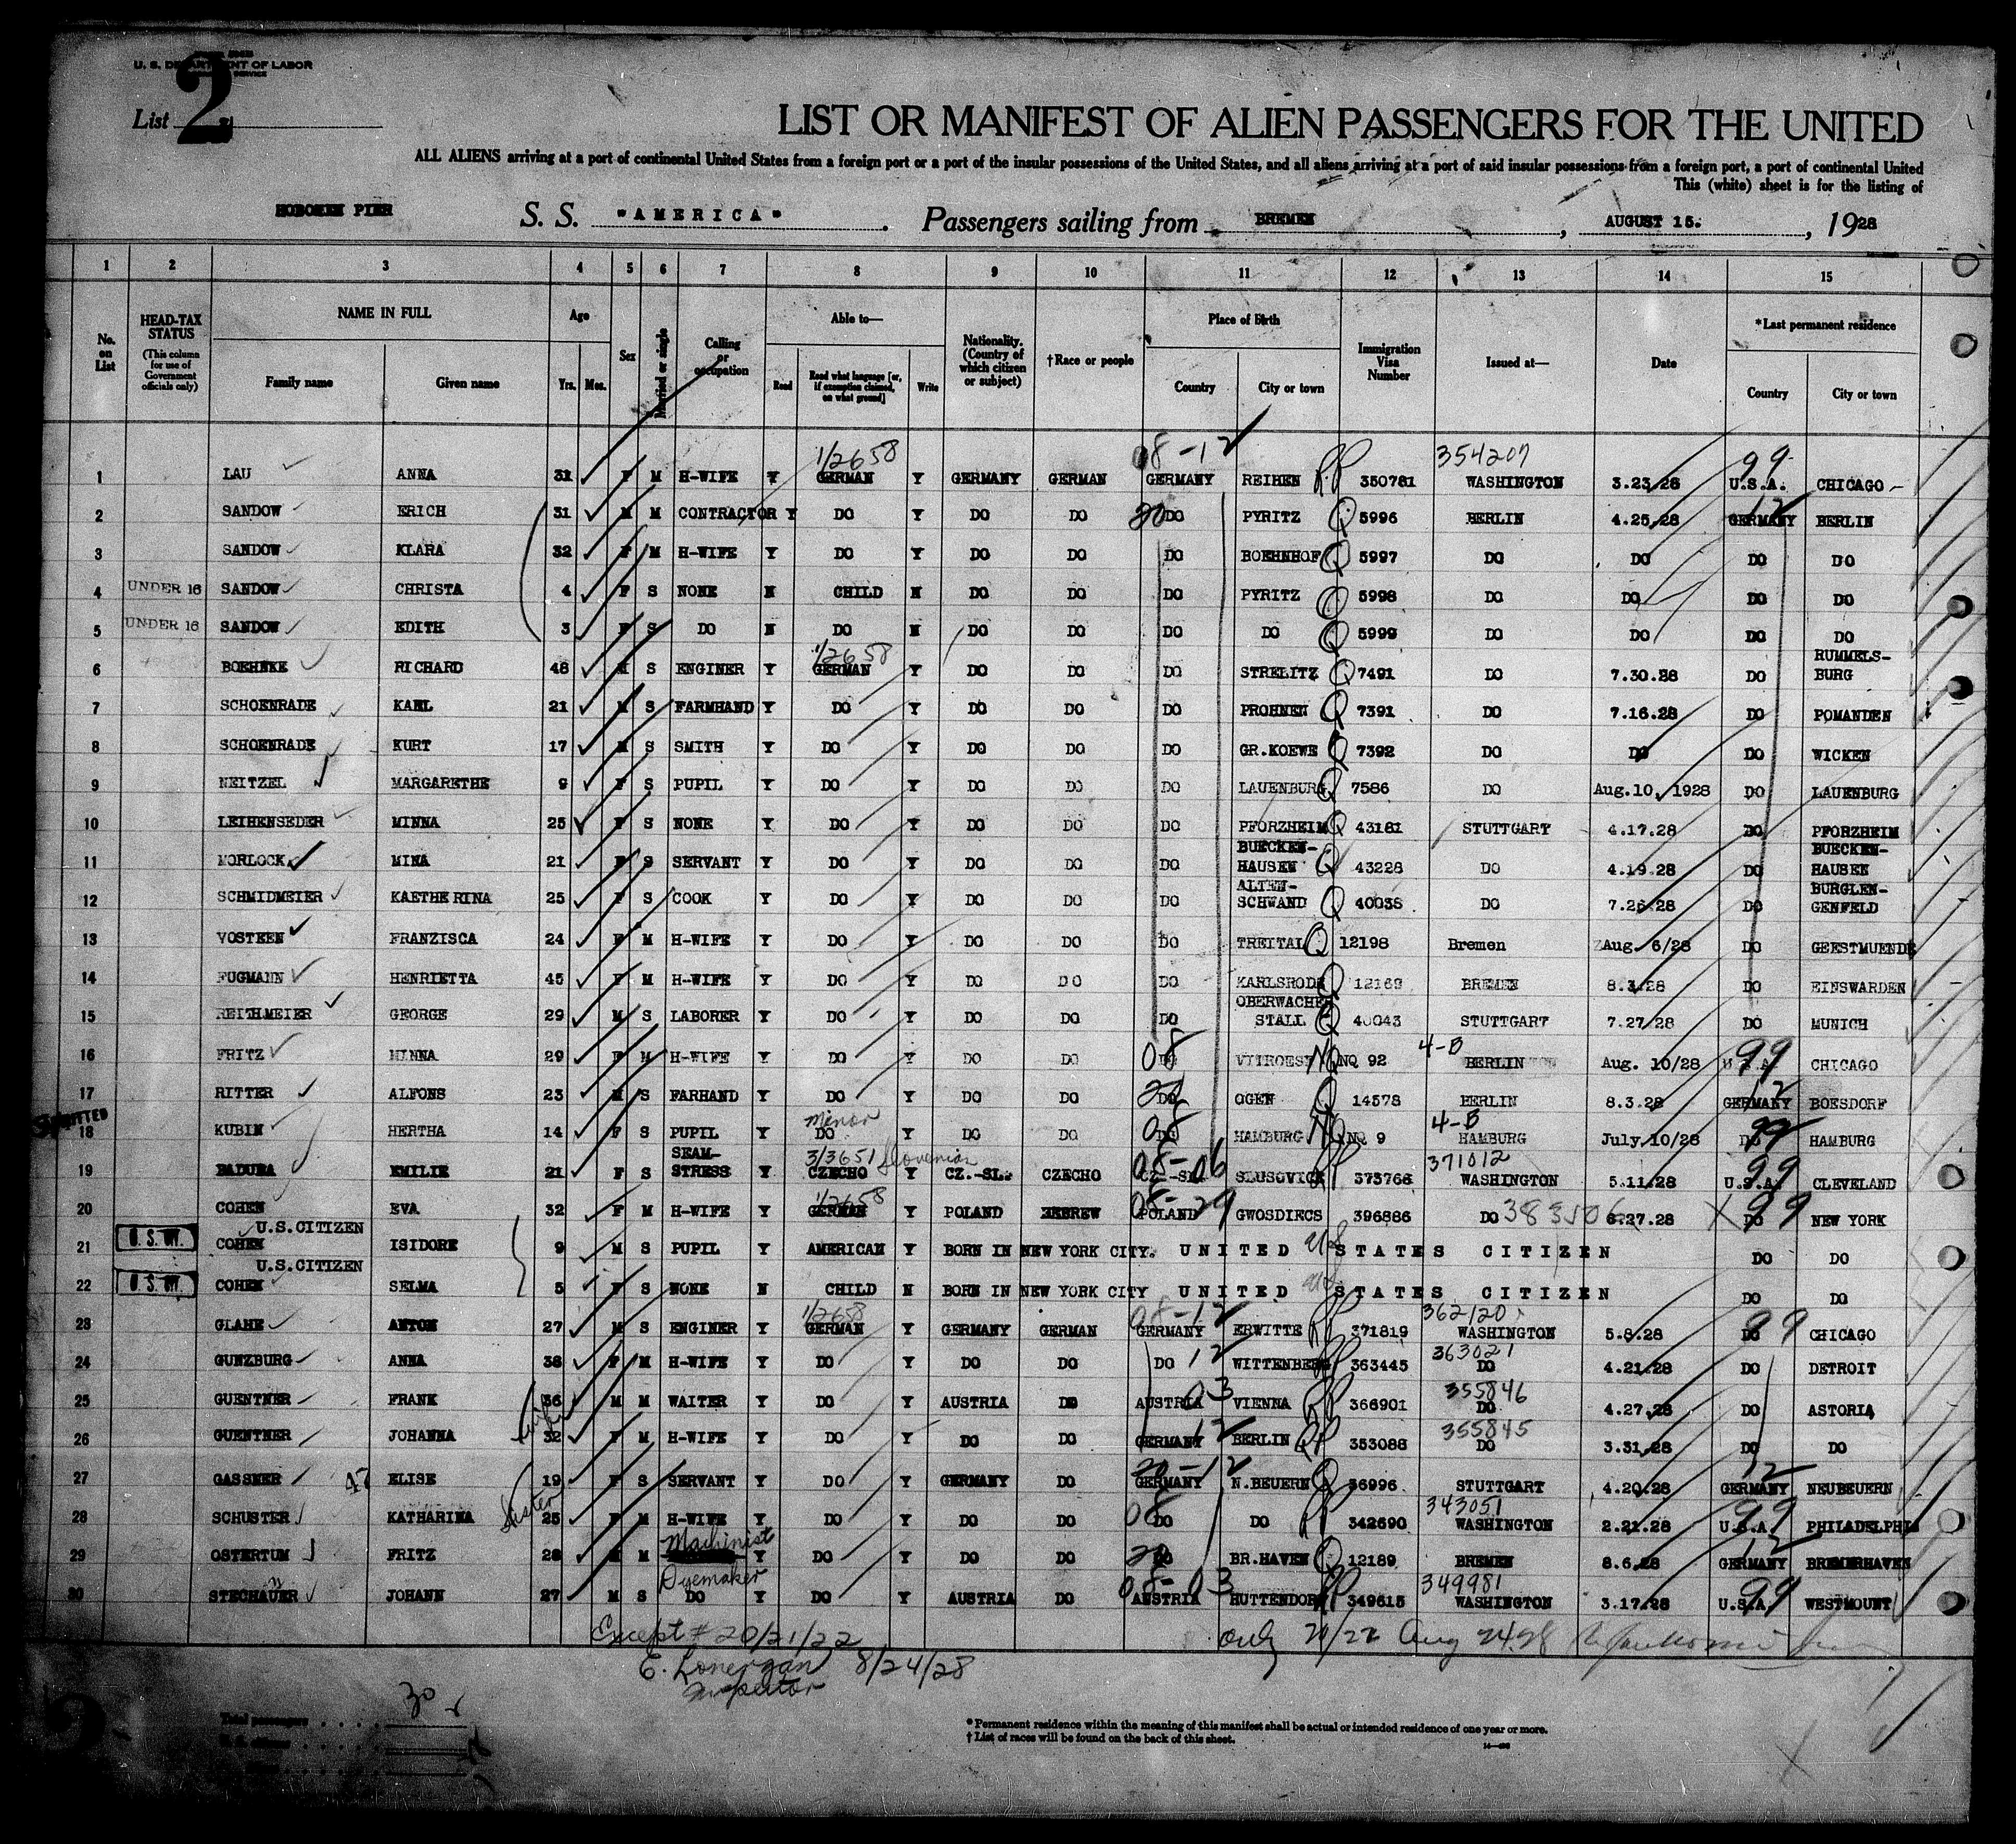 U. S. DEPARTMENT OF LABOR
List 2
LIST OR MANIFEST OF ALIEN PASSENGERS FOR THE UNITED
ALL ALIENS arriving at a port of continental United States from a foreign port or a port of the insular possessions of the United States, and all aliens arriving at a port of said insular possessions from a foreign port, a port of continental United
This (white) sheet is for the listing of
HOBOKEN PIER S. S. "AMERICA". Passengers sailing from BREMEN, AUGUST 15., 1928
1 2 3 4 5 6 7 8 9 10 11 12 13 14 15
No. on List HEAD-TAX STATUS (This column for use of Government officials only) NAME IN FULL Family name Given name Age Yrs. Mos. Sex Married or single Calling or occupation Able to— Read Read what language [or, if exemption claimed, on what ground] Write Nationality. (Country of which citizen or subject) †Race or people Place of birth Country City or town Immigration Visa Number Issued at— Date *Last permanent residence Country City or town
1/2658 08-12 354207 99
1 LAU ANNA 31 F M H-WIFE Y GERMAN Y GERMANY GERMAN GERMANY REIHEN RP 350781 WASHINGTON 3.23.28 U.S.A. CHICAGO
2 SANDOW ERICH 31 M M CONTRACTOR Y DO Y DO DO 20 DO PYRITZ Q 5996 BERLIN 4.25.28 GERMANY 12 BERLIN
3 SANDOW KLARA 32 F M H-WIFE Y DO Y DO DO DO BOEHNHOF Q 5997 DO DO DO DO
4 UNDER 16 SANDOW CHRISTA 4 F S NONE N CHILD N DO DO DO PYRITZ Q 5998 DO DO DO DO
5 UNDER 16 SANDOW EDITH 3 F S DO N DO N DO DO DO DO Q 5999 DO DO DO DO
1/2658
6 BOEHNKE RICHARD 48 M S ENGINER Y GERMAN Y DO DO DO STRELITZ Q 7491 DO 7.30.28 DO RUMMELS-BURG
7 SCHOENRADE KARL 21 M S FARMHAND Y DO Y DO DO DO PROHNEN Q 7391 DO 7.16.28 DO POMANDEN
8 SCHOENRADE KURT 17 M S SMITH Y DO Y DO DO DO GR.KOEWE Q 7392 DO DO DO WICKEN
9 NEITZEL MARGARETHE 9 F S PUPIL Y DO Y DO DO DO LAUENBURG Q 7586 DO Aug.10, 1928 DO LAUENBURG
10 LEIHENSEDER MINNA 25 F S NONE Y DO Y DO DO DO PFORZHEIM Q 43181 STUTTGART 4.17.28 DO PFORZHEIM
11 MORLOCK MINA 21 F S SERVANT Y DO Y DO DO DO BUECKEN-HAUSEN Q 43228 DO 4.19.28 DO BUECKEN-HAUSEN
12 SCHMIDMEIER KAETHERINA 25 F S COOK Y DO Y DO DO DO ALTEN-SCHWAND Q 40038 DO 7.26.28 DO BURGLEN-GENFELD
13 VOSTEEN FRANZISCA 24 F M H-WIFE Y DO Y DO DO DO TREITAL Q 12198 Bremen Aug. 6/28 DO GEESTMUENDE
14 FUGMANN HENRIETTA 45 F M H-WIFE Y DO Y DO DO DO KARLSRODE Q 12169 BREMEN 8.3.28 DO EINSWARDEN
15 REITHMEIER GEORGE 29 M S LABORER Y DO Y DO DO DO OBERWACHER STALL Q 40043 STUTTGART 7.27.28 DO MUNICH
16 FRITZ MINNA 29 F M H-WIFE Y DO Y DO DO 08 DO NQ NQ 92 4-B BERLIN Aug. 10/28 U.S.A. 99 CHICAGO
17 RITTER ALFONS 23 M S FARHAND Y DO Y DO DO 20 DO OGEN Q 14578 BERLIN 8.3.28 GERMANY 12 BOESDORF
18 KUBIN HERTHA 14 F S PUPIL Y Minor DO Y DO DO 08 DO HAMBURG NQ NQ 9 4-B HAMBURG July.10/28 DO 99 HAMBURG
3/3651 Slovenian 08-06 371012 99
19 BADURA EMILIE 21 F S SEAM-STRESS Y CZECHO Y CZ.-SL. CZECHO CZ.-SL. SLUSOVICE RP 373768 WASHINGTON 5.11.28 U.S.A. CLEVELAND
1/2658 08-29 383506
20 COHEN EVA 32 F M H-WIFE Y GERMAN Y POLAND HEBREW POLAND GWOSDIECS 396886 DO 6.27.28 X DO 99 NEW YORK
21 U. S. CIT. U.S.CITIZEN COHEN ISIDORE 9 M S PUPIL Y AMERICAN Y BORN IN NEW YORK CITY. UNITED STATES CITIZEN DO DO
22 U. S. CIT. U.S.CITIZEN COHEN SELMA 5 F S NONE N CHILD N BORN IN NEW YORK CITY UNITED STATES CITIZEN DO DO
1/2658 08-12 362120
23 GLAHE ANTON 27 M S ENGINER Y GERMAN Y GERMANY GERMAN GERMANY ERWITTE RP 371819 WASHINGTON 5.8.28 DO 99 CHICAGO
363021
24 GUNZBURG ANNA 38 F M H-WIFE Y DO Y DO DO DO 12 WITTENBERG RP 363445 DO 4.21.28 DO DETROIT
355846
25 GUENTNER FRANK 36 M M WAITER Y DO Y AUSTRIA DO AUSTRIA 03 VIENNA RP 366901 DO 4.27.28 DO ASTORIA
wife 355845
26 GUENTNER JOHANNA 32 F M H-WIFE Y DO Y DO DO GERMANY 12 BERLIN RP 353088 DO 3.31.28 DO DO
20-12 12
27 GASSNER 47 ELISE 19 F S SERVANT Y DO Y GERMANY DO GERMANY N.BEUERN Q 36996 STUTTGART 4.20.28 GERMANY NEUBEUERN
Sister 343051
28 SCHUSTER KATHARINA 25 F M H-WIFE Y DO Y DO DO 08 DO DO RP 342690 WASHINGTON 2.21.28 U.S.A. 99 PHILADELPHIA
Machinist
29 OSTERTUM FRITZ 28 M M Y DO Y DO DO 20 DO BR.HAVEN Q 12189 BREMEN 8.6.28 GERMANY 12 BREMERHAVEN
Dyemaker 349981
30 STECHAUER JOHANN 27 M S DO Y DO Y AUSTRIA DO 08-03 AUSTRIA HUTTENDORF RP 349615 WASHINGTON 3.17.28 U.S.A. 99 WESTMOUNT
Except # 20/21/22 only 20/22 Aug 24.28
E. Lonergan 8/24/28
Inspector
Total passengers . . . . 30
* Permanent residence within the meaning of this manifest shall be actual or intended residence of one year or more.
† List of races will be found on the back of this sheet.